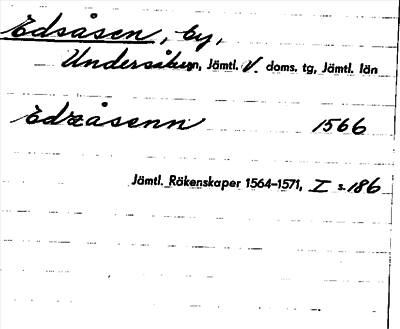 Edsåsen, by,
Undersåkers, Jämtl. V. doms. tg, Jämtl. län
Edzåsenn 1566
Jämtl. Räkenskaper 1564–1571, I s. 186